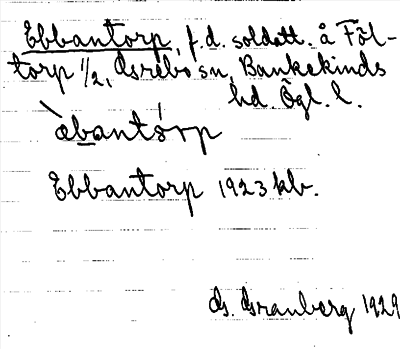 Ebbantorp, f.d. soldatt. å Föl-
torp 1/2, Grebo sn, Bankekinds
hd. Ögl. l.
`æbantórp
Ebbantorp 1923 kb.
G. Granberg 1929